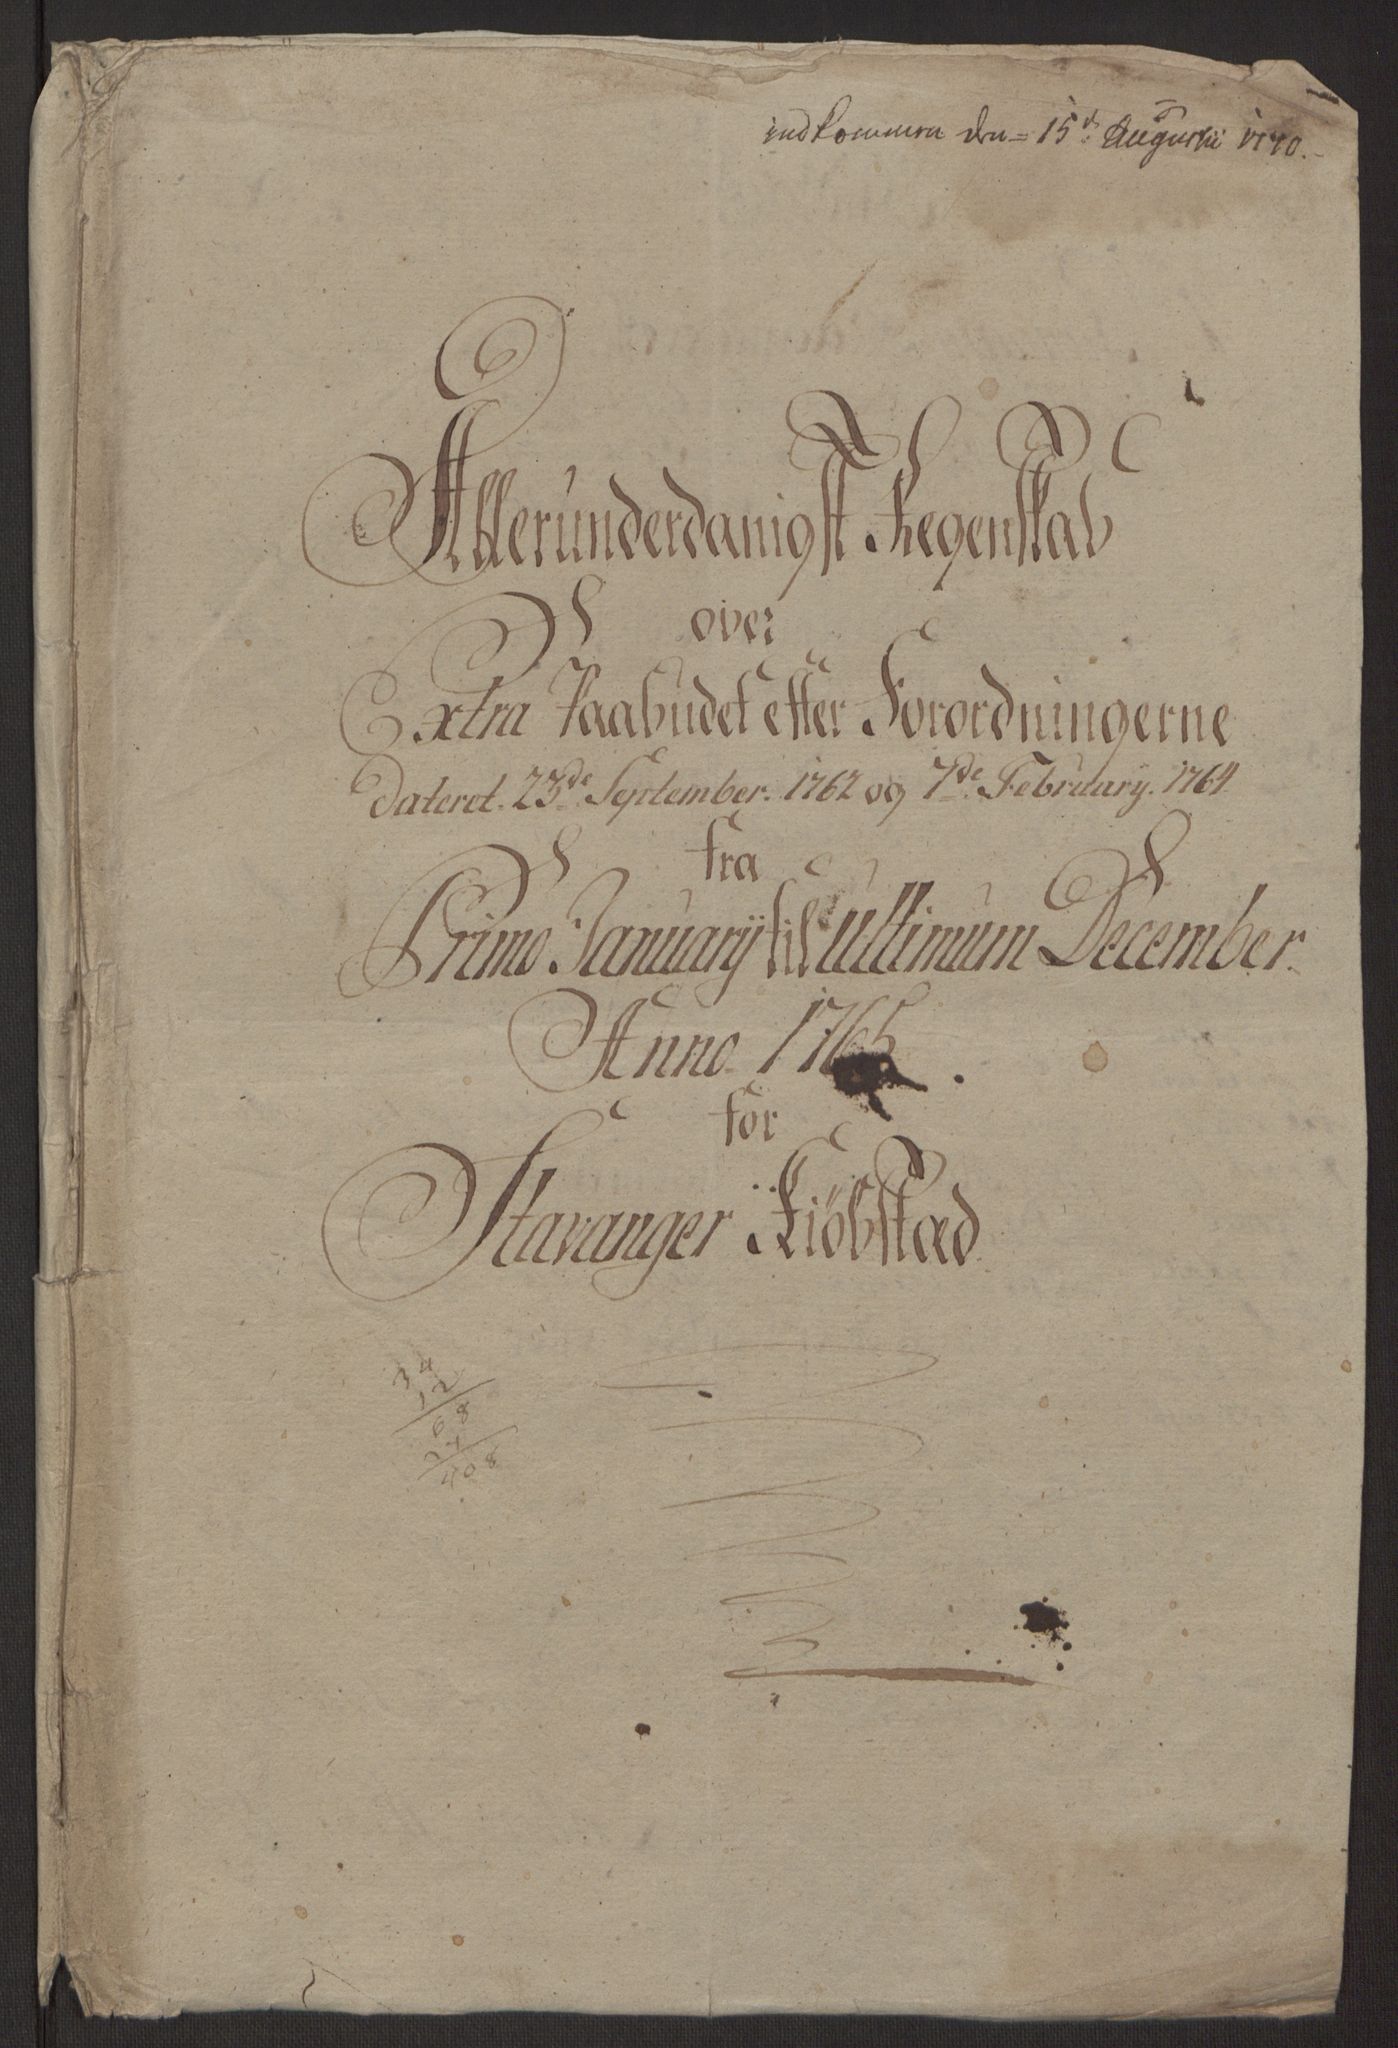 indkommen den = 15d Augustii 1770.
Allerunderdanigst Regenskab
over
Extra Paabudet efter Forordningerne
dateret. 23de September. 1762 og 7de February. 1764
fra
Primo Januarij til Ultimum December.
Anno 1765.
for
Stavanger Kiöbstæd
34
12
68
34
408